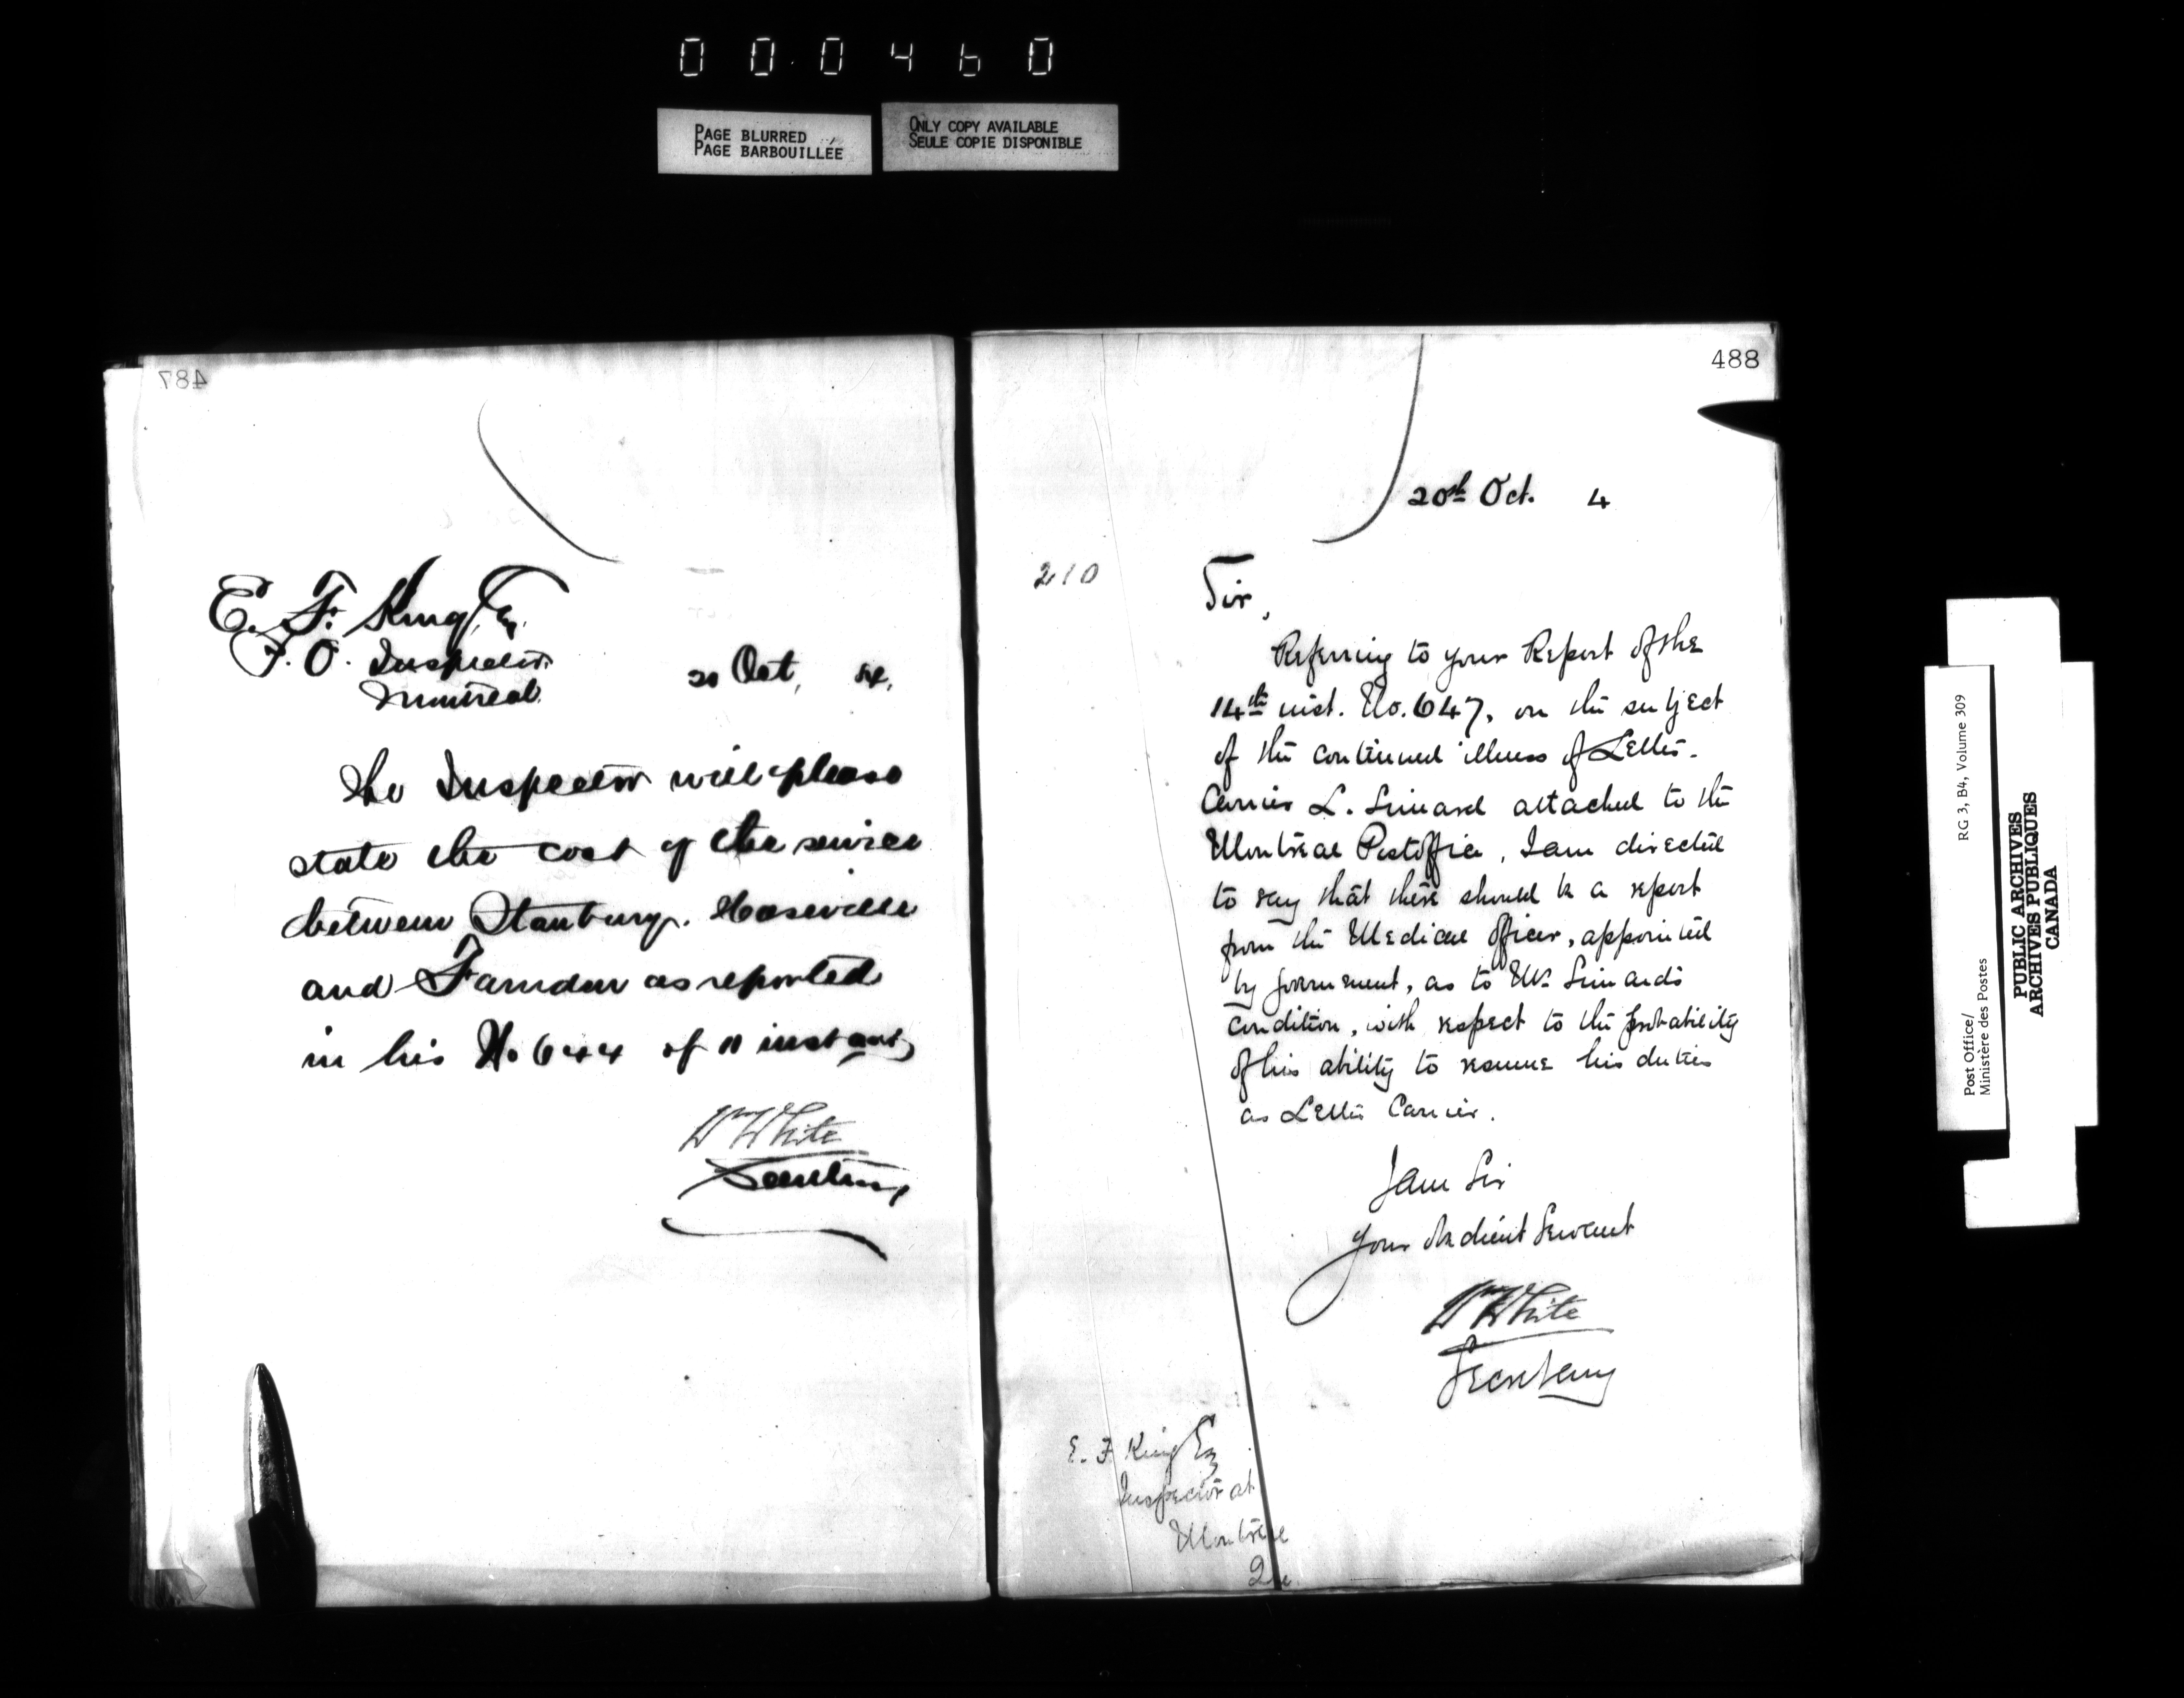 000460
PAGE BLURRED
PAGE BARBOUILLEE
ONLY COPY AVAILABLE
SEULE COPIE DISPONIBLE
487
E. F. King, Esq.
P. O. Inspector
Montreal.
20 Oct, 84.
The Inspector will please
state the cost of the service
between Stanbury,
and Farndon as reported
in his No 644 of 11 instant,
Wm White
Secretary
488
20th Oct. 4
210
Sir,
Referring to your Report of the
14th inst. No. 647, on the subject
of the continued illness of Letter-
Carrier L. Simard attached to the
Montreal Postoffice, I am directed
to say that there should be a report
from the Medical Officer, appointed
by government, as to Mr. Simard's
condition, with respect to the probability
of his ability to resume his duties
as Letter Carrier.
I am Sir
Your obedient Servant
Wm White
Secretary
E. F. King Esq
Inspector at
Montreal
Que
Post Office/
Ministère des Postes
RG 3, B4, Volume 309
PUBLIC ARCHIVES
ARCHIVES PUBLIQUES
CANADA